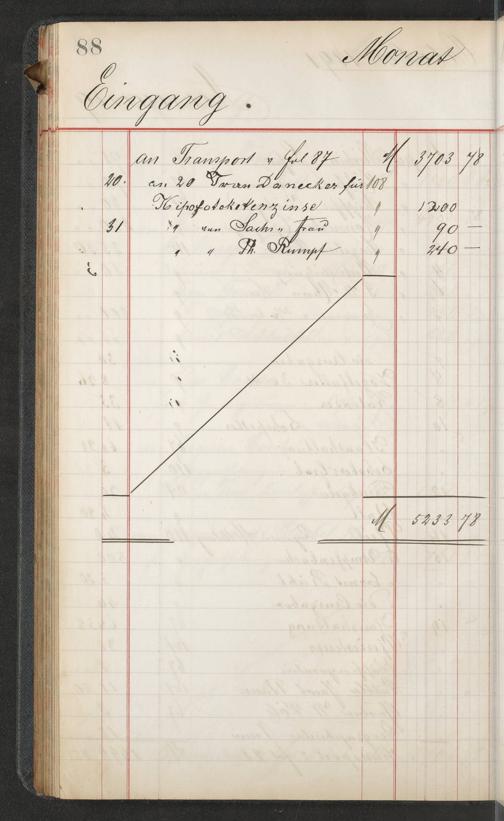 88
Monat
Eingang.
an Transport v fol 87 M 3703 78
20. an 20 von Danecker für 108
Hipofotekstenzinse " 1200
31 " von Sachs Frau " 90 —
" " Th. Rumpf " 240 —
M 5233 78